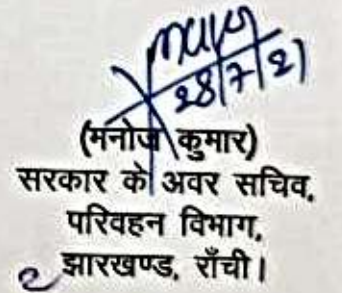 28/7/21
(मनोज कुमार)
सरकार के अवर सचिव,
परिवहन विभाग,
झारखण्ड, राँची।